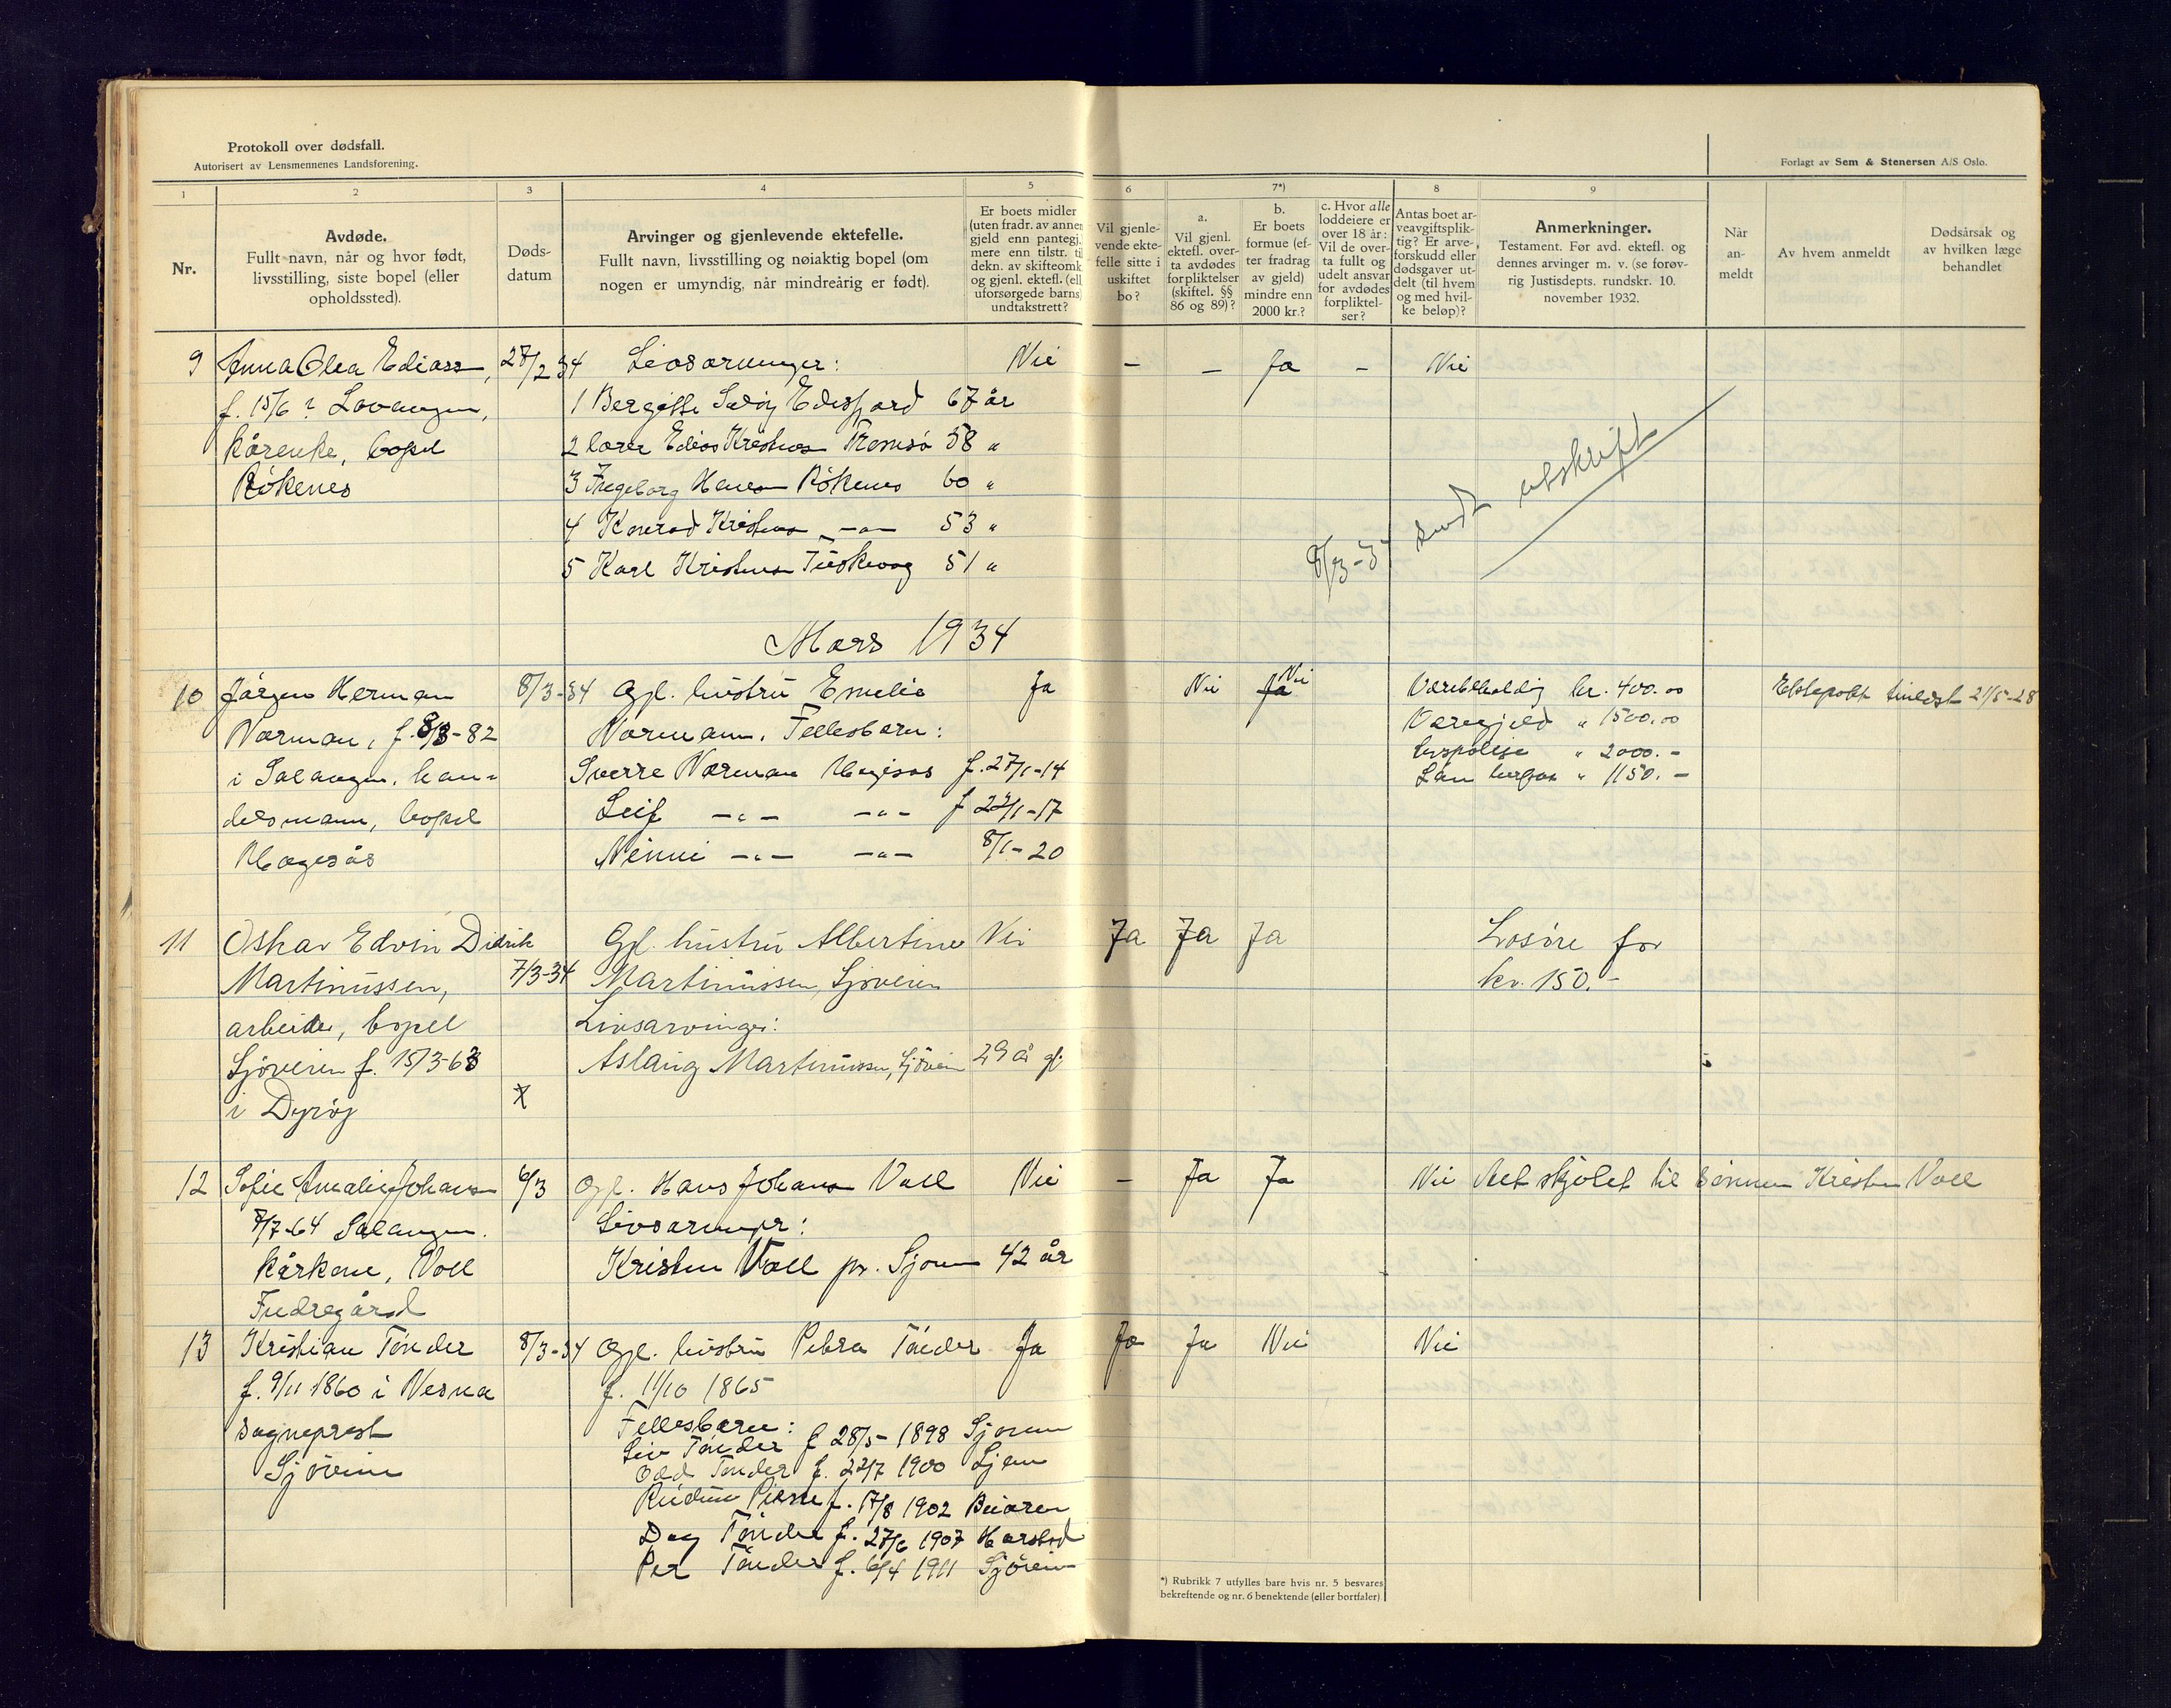 Protokoll over dødsfall.
Autorisert av Lensmennenes Landsforening.
Forlagt av Sem & Stenersen A/S Oslo.
1 2 3 4 5 6 7*) 8 9
Nr.
Avdøde.
Fullt navn, når og hvor født,
livsstilling, siste bopel (eller
opholdssted).
Døds-
datum
Arvinger og gjenlevende ektefelle.
Fullt navn, livsstilling og nøiaktig bopel (om
nogen er umyndig, når mindreårig er født).
Er boets midler
(uten fradr. av annen
gjeld enn pantegj.
mere enn tilstr. til
dekn. av skifteomk
og gjenl. ektefl. (ell
uforsørgede barns)
undtakstrett?
Vil gjenle-
vende ekte-
felle sitte i
uskiftet
bo?
a.
Vil gjenl.
ektefl. over-
ta avdødes
forpliktelser
(skiftel. §§
86 og 89)?
b.
Er boets
formue (ef-
ter fradrag
av gjeld)
mindre enn
2000 kr.?
c. Hvor alle
loddeiere er
over 18 år:
Vil de over-
ta fullt og
udelt ansvar
for avdødes
forpliktel-
ser?
Antas boet ar-
veavgiftsplik-
tig? Er arve-
forskudd eller
dødsgaver ut-
delt (til hvem
og med hvil-
ke beløp)?
Anmerkninger.
Testament. Før avd. ektefl. og
dennes arvinger m. v. (se forøv-
rig Justisdepts. rundskr. 10.
november 1932.
Når
an-
meldt
Av hvem anmeldt
Dødsårsak og
av hvilken læge
behandlet
9 Anna Olea Eliass, 27/2 34 Livsarvinger: Nei – – Ja – Nei
f. 15/6 ? Lavangen, 1 Bergitte 67 år
kårenke, bopel 2 Elias Kristians Tromsø 58 "
Røkenes 3 Ingeborg Hansen Røkenes 60 "
4 Konrad Kristians –"– 53 "
5 Karl Kristians 51 "
8/3-34 sendt utskrift
Mars 1934
10 Jørgen Herman 8/3-34 Gjl. hustru Emelie Ja Nei Ja Nei
Norman, f. 8/3-82 Normann. Fellesbarn:
i Salangen, han- Sverre Norman Hagesås f. 27/1-14
delsmann, bopel Leif –"– –"– f 22/1-17
Hagesås Nenni –"– –"– 8/1-20
Varebeholdng kr. 400.00
Varegjeld " 1500.00
livspolise " 2000.–
Lån " 1150.–
Ektepakt tinlyst 21/5-28
11 Oskar Edvin Didrik Gjl. hustru Albertine Nei Ja Ja Ja Løsøre for
Martinussen, 7/3-34 Martinussen, Sjøveien kr. 150.–
arbeider, bopel Livsarvinger:
Sjøveien f. 15/3-63 Aslaug Martinussen, Sjøveien 29 år gl.
i Dyrøy X
12 Sofie Amalie Johans 6/3 Gjl. Hans Johans Voll Nei – Ja Ja Nei Alt skjøtet til sønnen Kristen Voll
8/7-64 Salangen. Livsarvinger:
kårkone, Voll Kristen Voll pr. Sjøvn 42 år
Indregård
13 Kristian Tønder 8/3-34 Gjl. hustru Petra Tønder Ja Ja Ja Nei Nei
f. 9/11 1860 i Nesna f. 11/10 1865
sogneprest Fellesbarn:
Sjøvein Liv Tønder f 28/5-1898 Sjøvein
Odd Tønder f. 22/7 1900
f. 17/8 1902 Beiaren
Dag Tønder f. 27/6 1907 Harstad
Per Tønder f. 6/4 1911 Sjøvein
*) Rubrikk 7 utfylles bare hvis nr. 5 besvares
bekreftende og nr. 6 benektende (eller bortfaler)